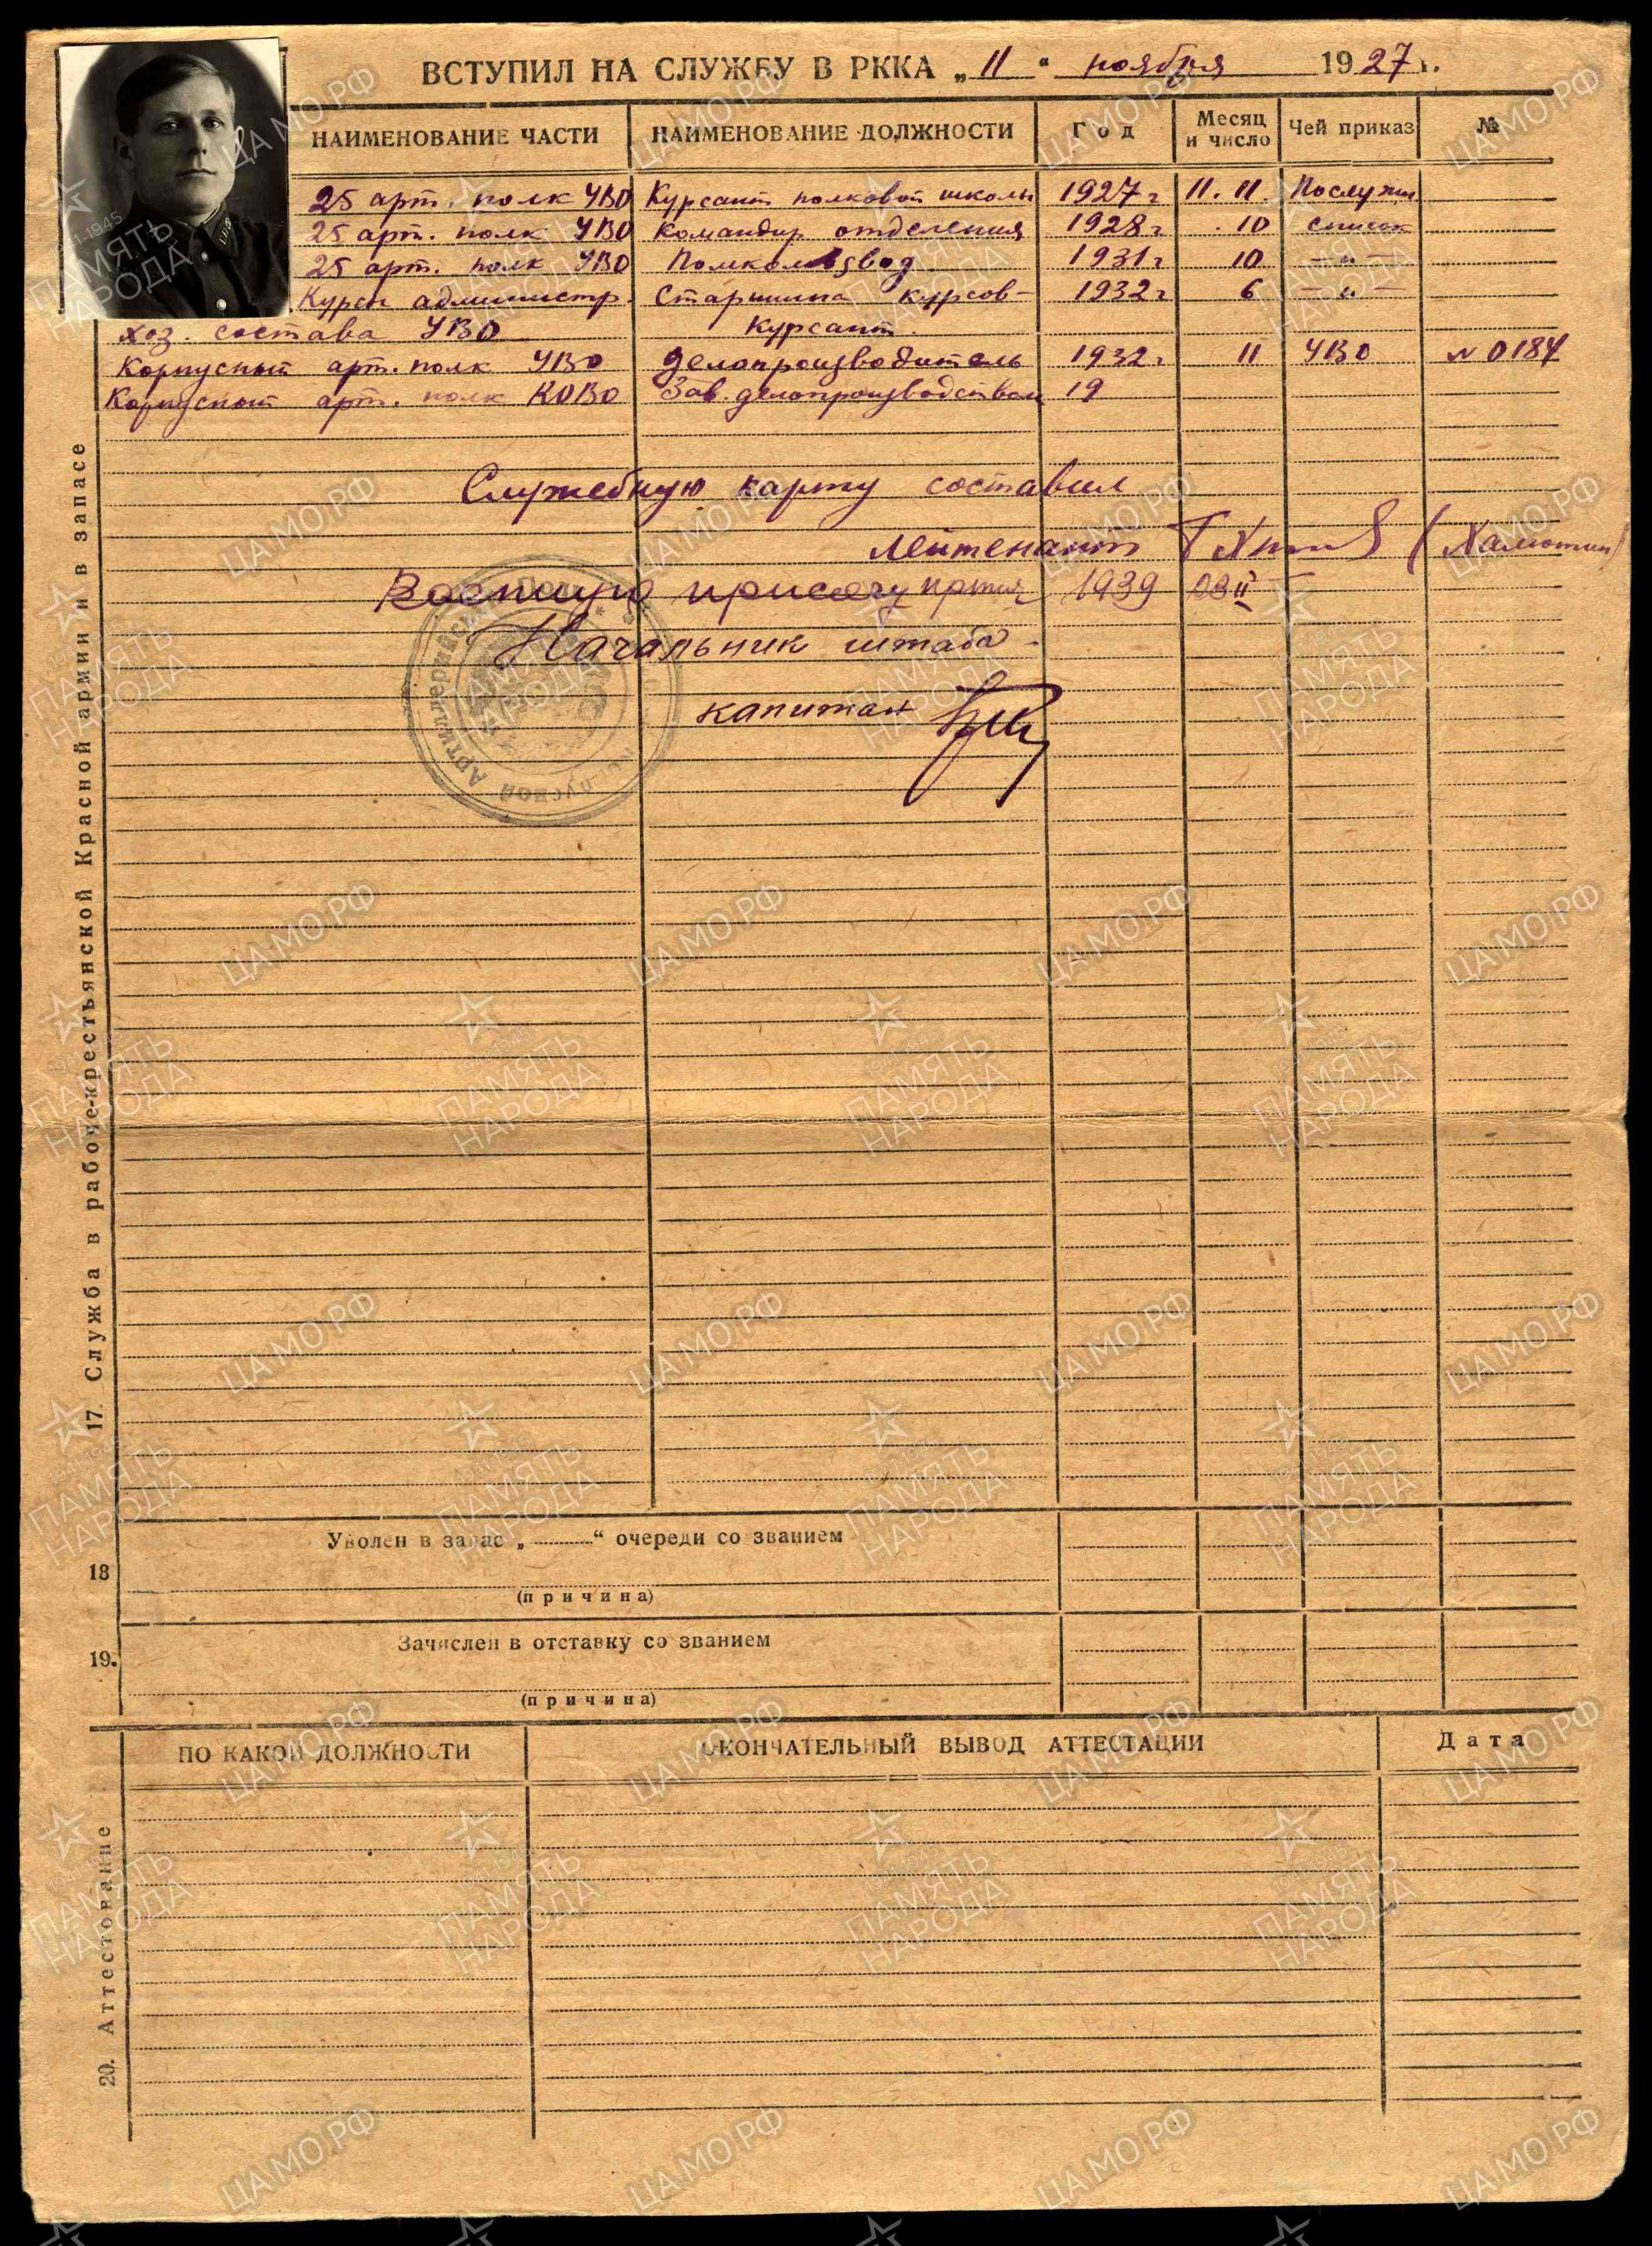 ВСТУПИЛ НА СЛУЖБУ В РККА „11“ ноября 1927 г.
НАИМЕНОВАНИЕ ЧАСТИ НАИМЕНОВАНИЕ ДОЛЖНОСТИ Год Месяц и число Чей приказ №
25 арт. полк УВО Курсант полковой школы 1927 г 11. 11. Послужн
25 арт. полк УВО Командир отделения 1928 г. 10 список
25 арт. полк УВО Помкомвзвод 1931 г 10 — „ —
Курсы администр. Старшина курсов- 1932 г 6 — „ —
хоз. состава УВО Курсант.
Корпусный арт. полк УВО Делопроизводитель 1932 г. 11 УВО № 0184
Корпусный арт. полк КОВО Зав. делопроизводством 19
Служебную карту составил
лейтенант (Халютин)
Военную присягу принял 1939 23 II
Начальник штаба
капитан
17. Служба в рабоче-крестьянской Красной армии и в запасе
18 Уволен в запас „ “ очереди со званием
(причина)
19. Зачислен в отставку со званием
(причина)
ПО КАКОЙ ДОЛЖНОСТИ ОКОНЧАТЕЛЬНЫЙ ВЫВОД АТТЕСТАЦИИ Дата
20. Аттестование
ЦАМО.РФ
1941-1945
ПАМЯТЬ
НАРОДА